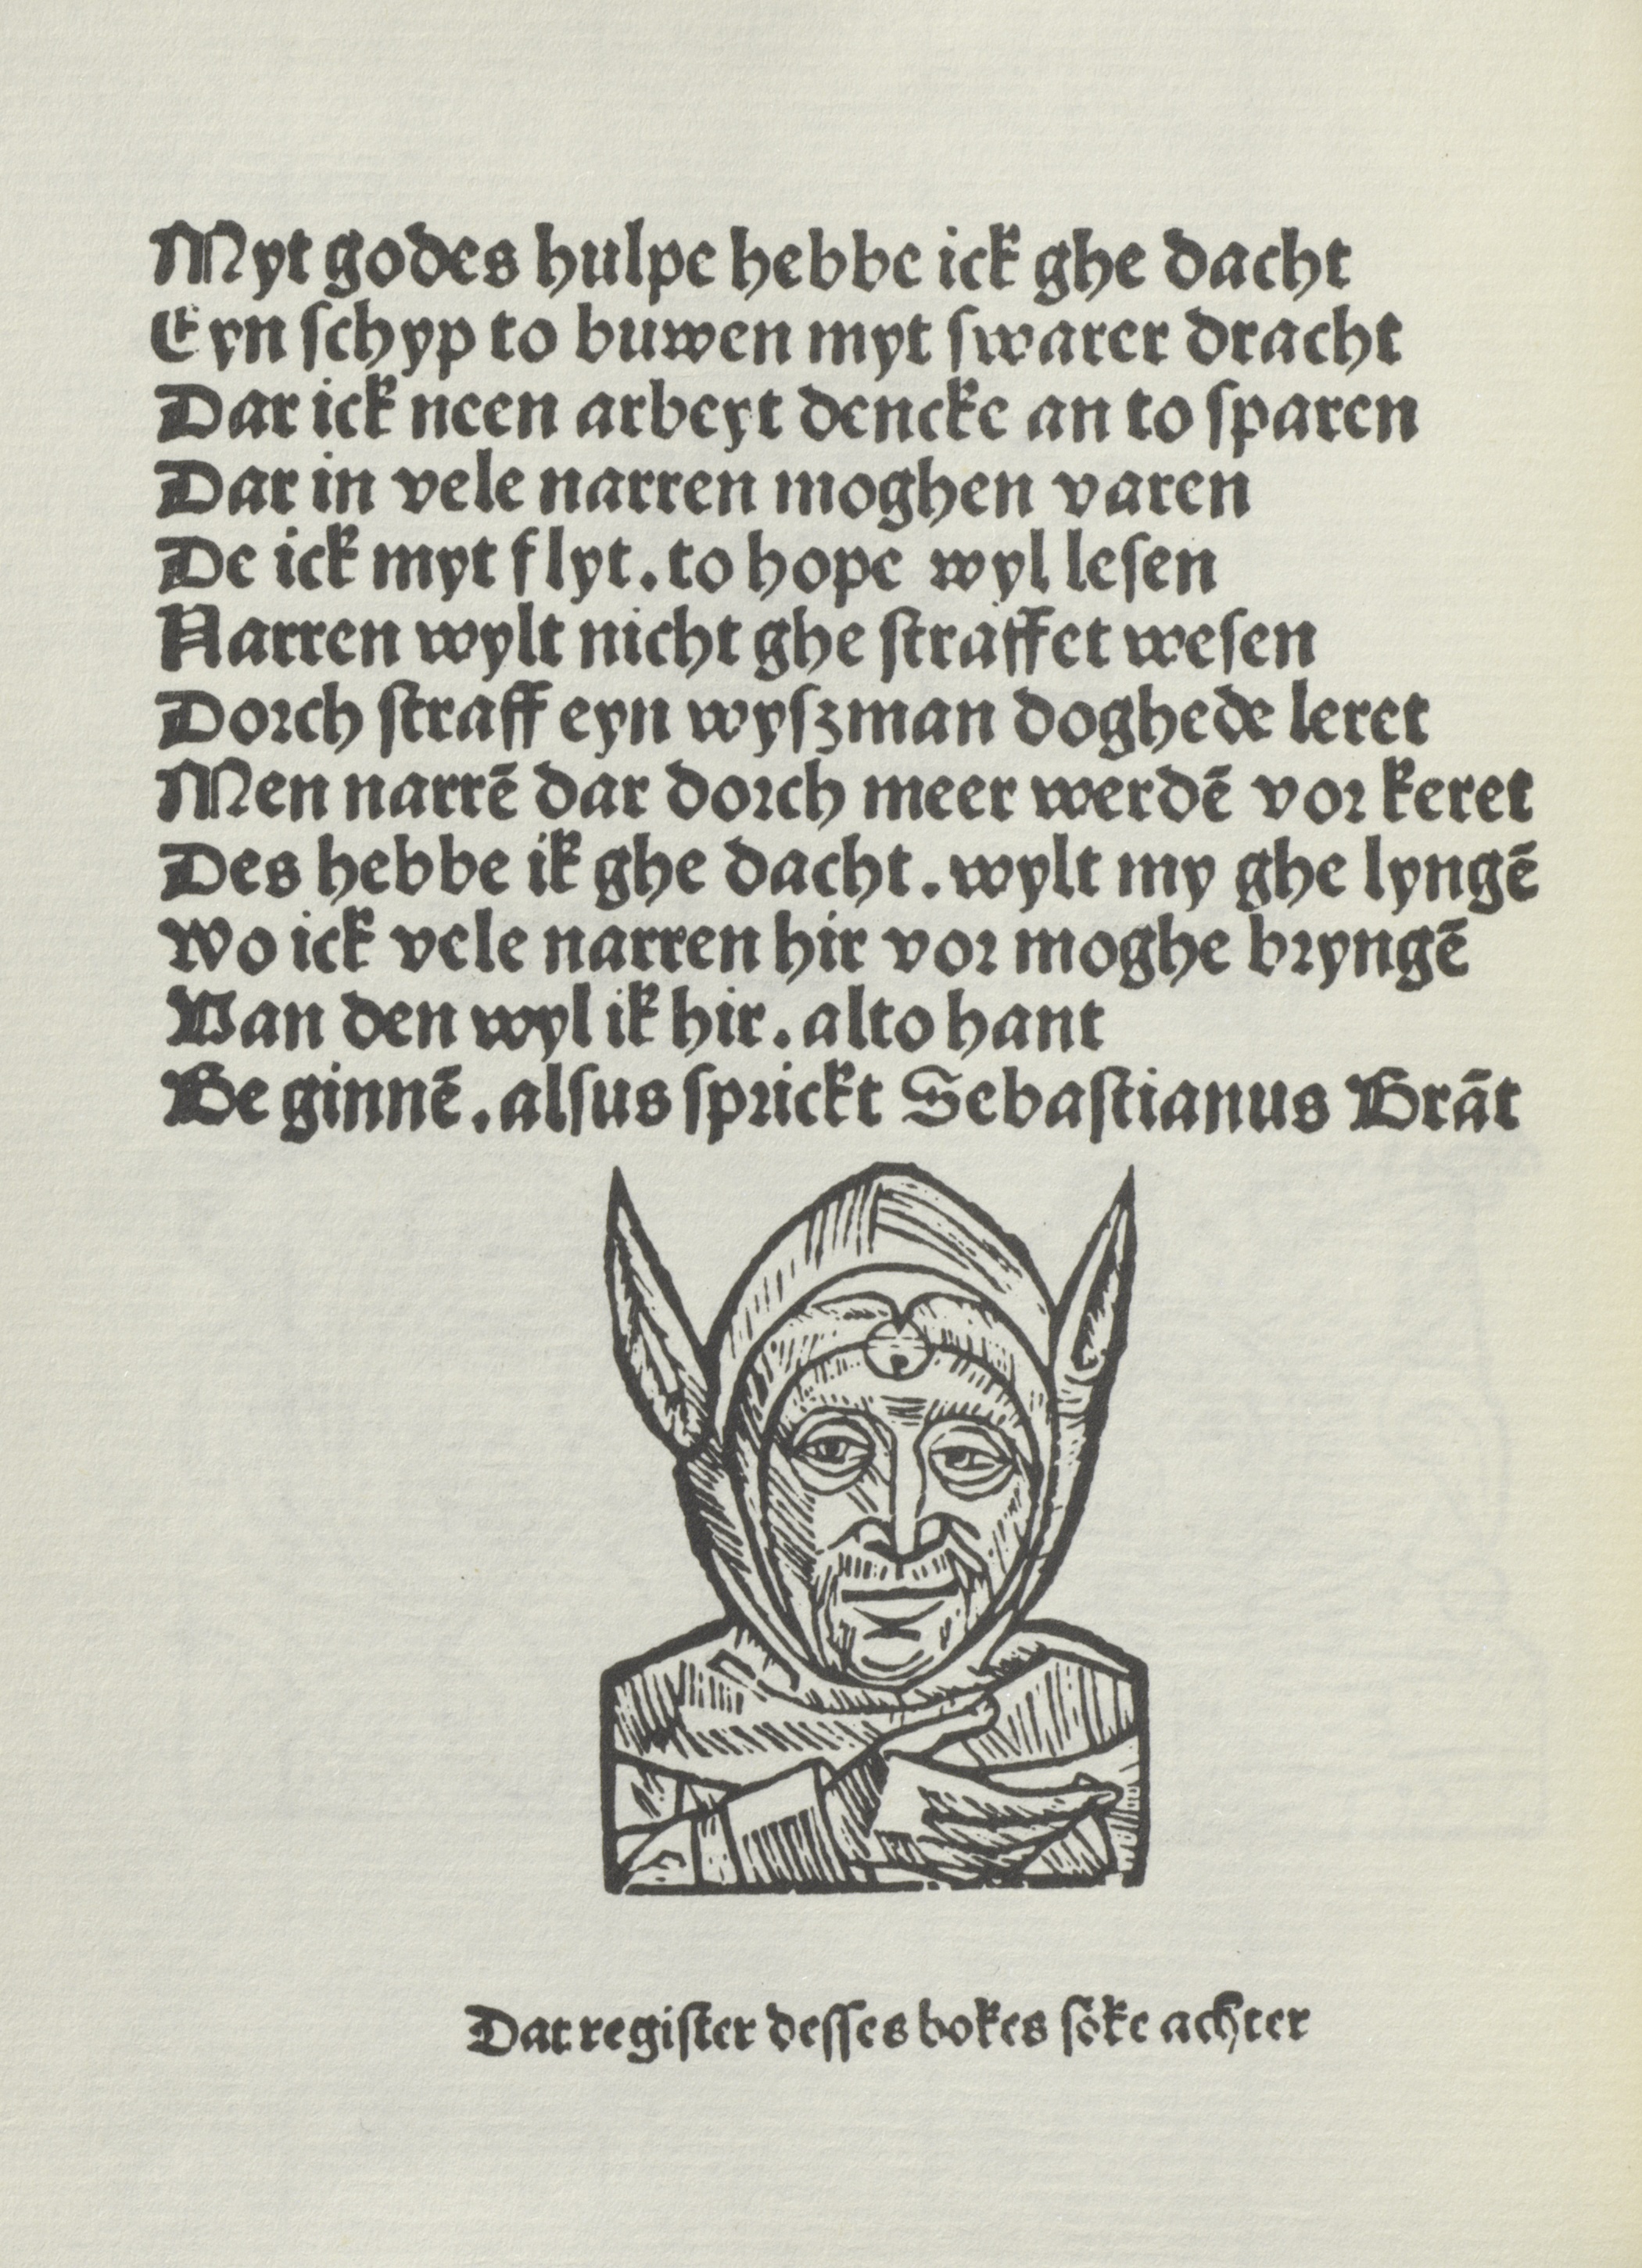 Myt godes hulpe hebbe ick ghe dacht
Eyn ſchyp to buwen myt ſwarer dracht
Dar ick neen arbeyt dencke an to ſparen
Dar in vele narren moghen varen
De ick myt flyt. to hope wyl leſen
Narren wylt nicht ghe ſtraffet weſen
Dorch ſtraff eyn wyſzman doghede leret
Men narrē dar dorch meer werdē vor keret
Des hebbe ik ghe dacht. wylt my ghe lyngē
Wo ick vele narren hir vor moghe bryngē
Van den wyl ik hir. alto hant
Be ginnē. alſus ſprickt Sebaſtianus Brāt
Dat regiſter deſſes bokes ſöke achter